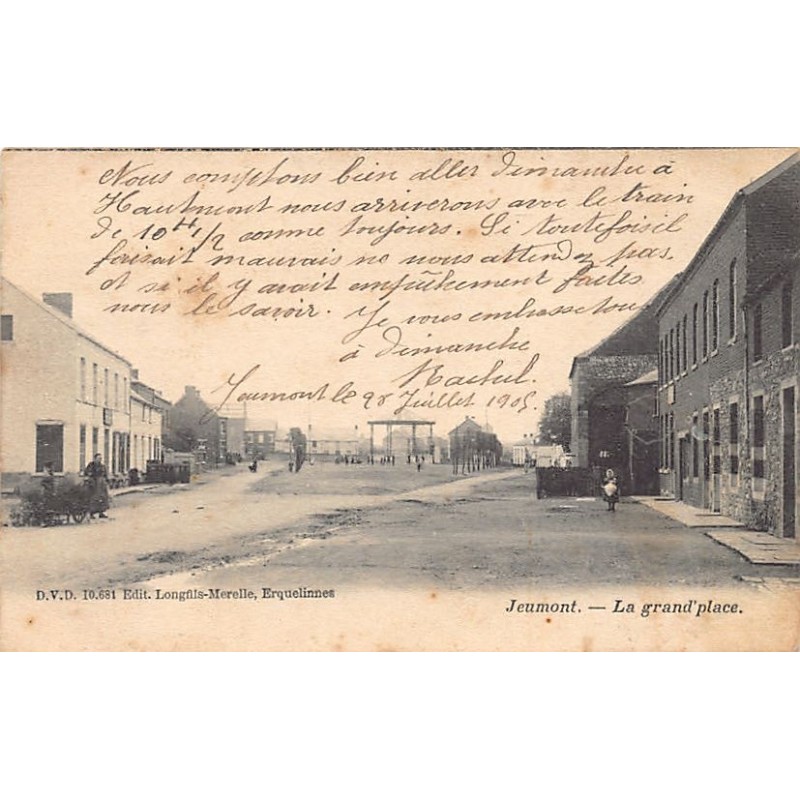 Nous comptons bien aller Dimanche à
Hautmont nous arriverons avec le train
de 10 H 1/2 comme toujours. Si toutefois il
faisait mauvais ne nous attendez pas.
et si il y avait empêchement faites
nous le savoir. Je vous embrasse tous
à dimanche
Rachel.
Jeumont le 28 Juillet 1905
D.V.D. 10.681 Edit. Longfils-Merelle, Erquelinnes
Jeumont. — La grand'place.